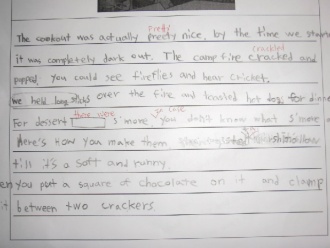 The cookout was actually pretty nice, by the time we
it was completely dark out. The camp fire cracked and
popped, you could see fireflies and hear cricket.
We held long sticks over the fire and toasted hot dogs for
For dessert there were s'more in case you don't know what s'more
Here's How you make them
till it's a soft and runny.
you put a square of chocolate on it and clamp
it between two crackers